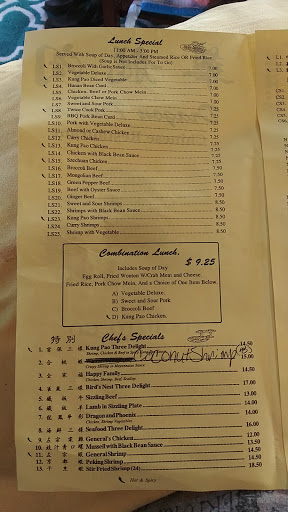 Lunch Special
11:00 AM - 3:00 PM
Served With Soup of Day, Appetizer And Steamed Rice OR Fried Rice
(Soup is Not Includes For To Go)
LS1. Broccoli With Garlic Sauce 7.00
LS2. Vegetable Deluxe 7.00
LS3. Kung Pao Diced Vegetable 7.00
LS4. Hunan Bean Curd
LS5. Chicken, Beef or Pork Chow Mein
LS6. Vegetable Chow Mein
LS7. Sweet and Sour Pork
LS8. Twice Cook Pork
LS9. BBQ Pork Bean Curd 7.25
LS10. Pork with Vegetable Deluxe 7.25
LS11. Almond or Cashew Chicken 7.25
LS12. Curry Chicken 7.25
LS13. Kung Pao Chicken 7.25
LS14. Chicken with Black Bean Sauce 7.25
LS15. Szechuan Chicken 7.25
LS16. Broccoli Beef 7.50
LS17. Mongolian Beef 7.50
LS18. Green Pepper Beef 7.50
LS19. Beef with Oyster Sauce 7.50
LS20. Ginger Beef 7.50
LS21. Sweet and Sour Shrimps 8.50
LS22. Shrimps with Black Bean Sauce 8.50
LS23. Kung Pao Shrimps 8.50
LS24. Curry Shrimps 8.50
LS25. Shrimp with Vegetable 8.50
Combination Lunch.
$ 9.25
Includes Soup of Day
Egg Roll, Fried Wonton W/Crab Meat and Cheese
Fried Rice, Pork Chow Mein, And a Choice of One Item Below.
A) Vegetable Deluxe.
B) Sweet and Sour Pork
C) Broccoli Beef
D) Kung Pao Chicken.
特別 Chef's Specials
1. 宮保三樣 Kung Pao Three Delight 14.50
Coconut Shrimp
2. 15.00
Crispy Shrimp in Mayonnaise Sauce
3. 全家福 Happy Family 14.50
Chicken, Shrimp, Beef Scallop
4. Bird's Nest Three Delight 17.00
5. 鐵板牛 Sizzling Beef 13.00
6. 鐵板羊 Lamb in Sizzling Plate 14.00
7. 龍鳳 Dragon and Phoenix 14.00
Chicken, Shrimp Vegetables
8. 海鮮三樣 Seafood Three Delight 16.00
9. 左宗棠雞 General's Chicken 12.00
10. Mussell with Black Bean Sauce 13.50
11. General Shrimp 14.50
12. Peking Shrimp 14.50
13. Stir Fried Shrimp (24) 18.50
Hot & Spicy